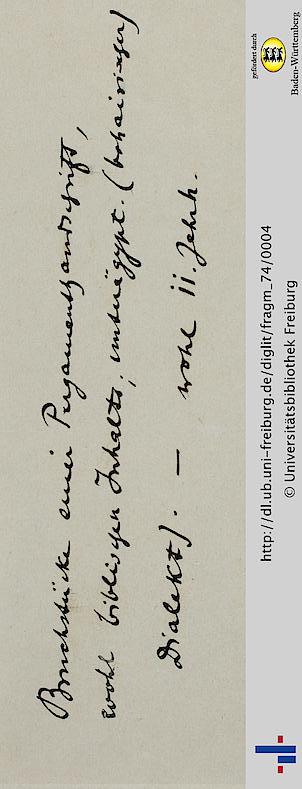 Bruchstücke einer Pergamenthandschrift,
wohl biblischen Inhalts, unterägypt. (bohairischer
Dialekt). — wohl 11. Jahrh.
http://dl.ub.uni-freiburg.de/diglit/fragm_74/0004
© Universitätsbibliothek Freiburg
gefördert durch
Baden-Württemberg